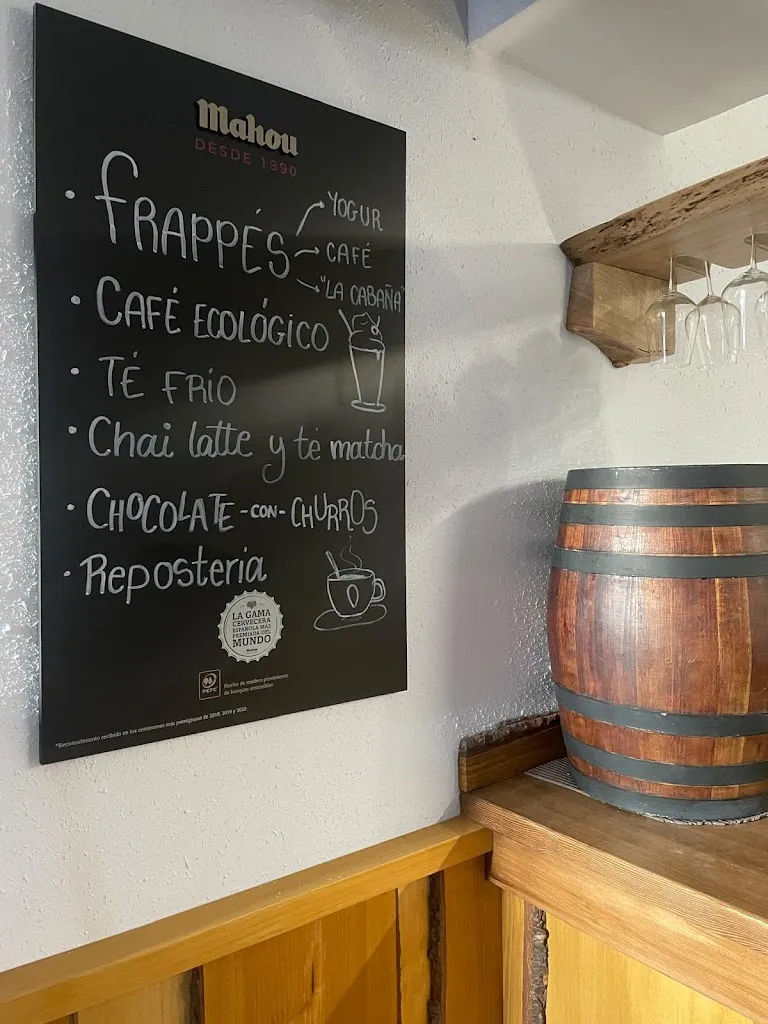 Mahou
DESDE 1890
• FRAPPÉS
YOGUR
CAFÉ
"LA CABAÑA"
• CAFÉ ECOLÓGICO
• TÉ FRÍO
• Chai latte y té matcha
• CHOCOLATE -CON- CHURROS
• Repostería
LA GAMA
CERVECERA
ESPAÑOLA MÁS
PREMIADA DEL
MUNDO
Mahou
PEFC
Hecho de madera proveniente
de bosques sostenibles
*Reconocimiento recibido en los certámenes más prestigiosos de 2018, 2019 y 2020.